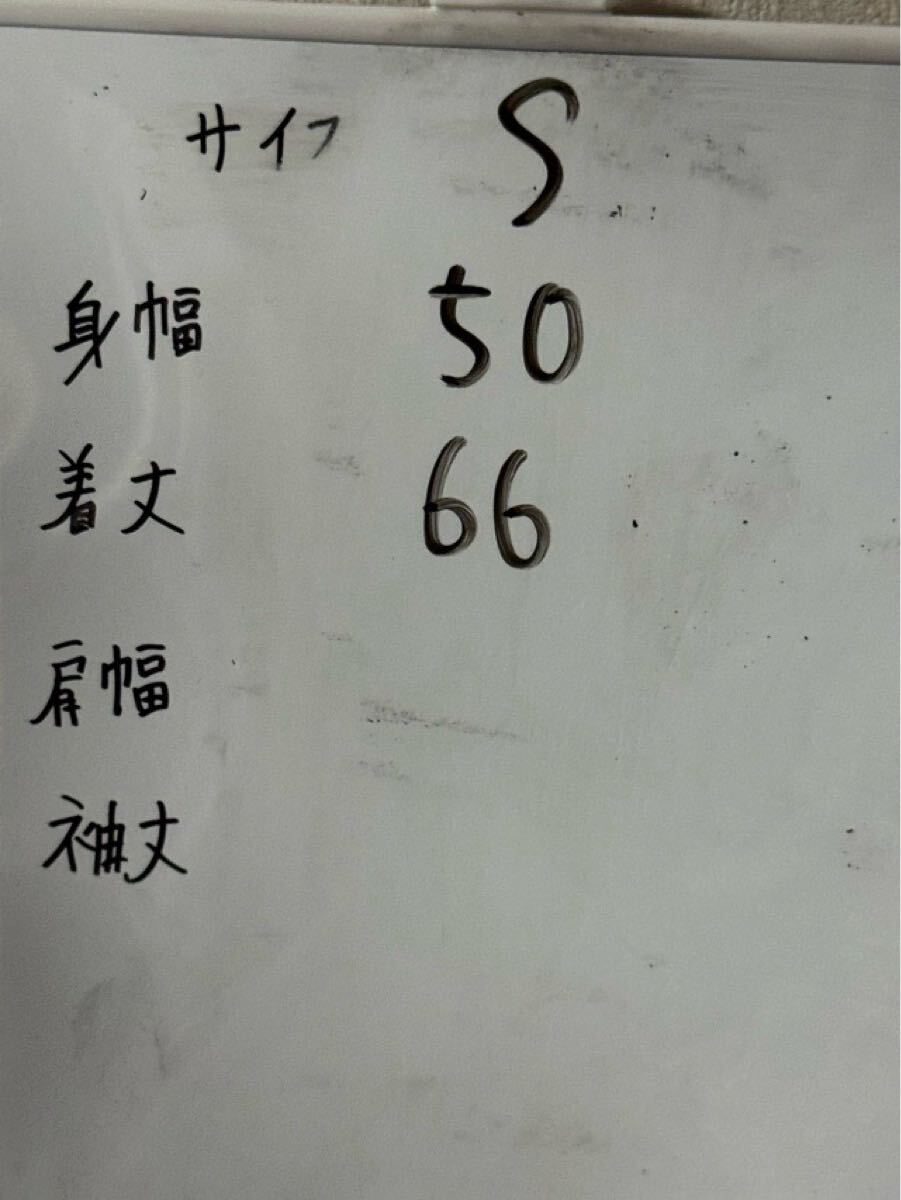 サイフ S
身幅 50
着丈 66
肩幅
袖丈